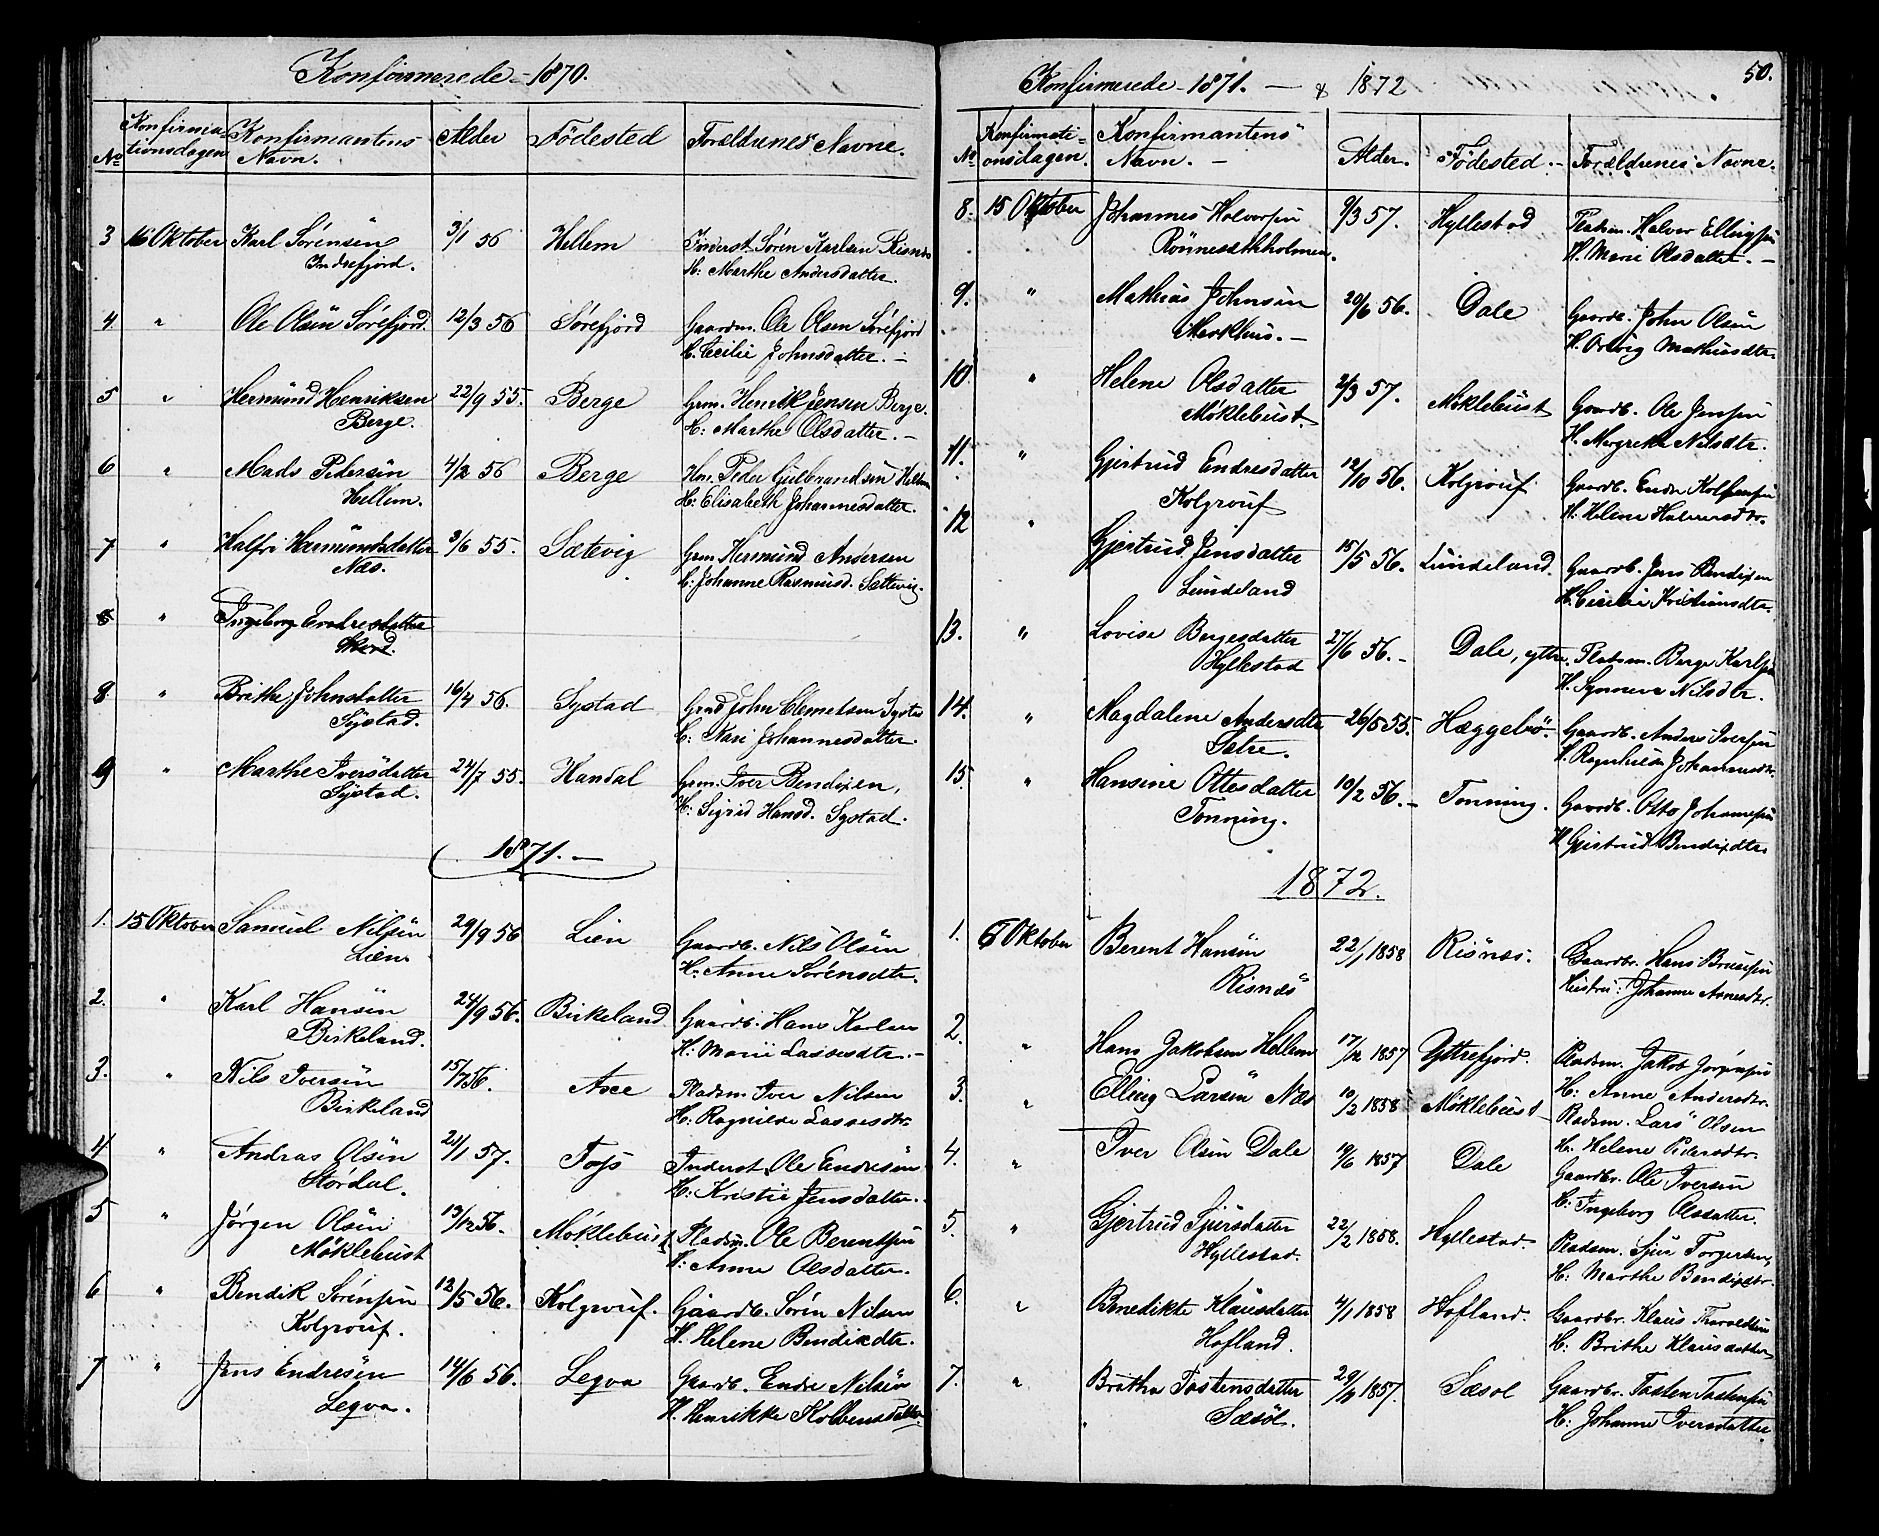 Konfirmerede - 1870.
No Konfirmationsdagen Konfirmantens Navn. Alder Födested Forældrenes Navne.
3 16 Oktober Karl Sörensen 3/1 56 Hellem Inderst. Sören Karlsen Risnes
Indrefjord. H: Marthe Andersdatter.
4 " Ole Olsen Sörefjord. 12/3 56 Sörefjord Gaardm. Ole Olsen Sörefjord
H. Cecilie Johnsdatter. -
5 " Hermund Henriksen 22/9 55. Berge Grm. Henrik Jensen Berge.
Berge. H: Marthe Olsdatter. -
6 " Mads Pedersen 4/2 56 Berge Peder Gulbrandsen Hellem
Hellem. H: Elisabeth Johannesdatter.
7 " Halfri Hermundsdatter 3/6 55. Sætevig Grm. Hermund Andersen
Næs. H: Johanne Rasmusd. Sættevig.
8 " Ingeborg Endresdatter
8 " Brithe Johnsdatter 16/4 56. Systad John Clemetsen Systad
Systad. H: Kari Johannesdatter.
9 " Marthe Iversdatter 24/7 55. Handal Grm. Iver Bendixen,
Systad. H: Sigrid Hansd. Systad.
1871. -
1. 15 Oktober Samuel Nilsen 29/9 56 Lien Gaardb. Nils Olsen
Lien H: Anne Sörensdtr.
2. " Karl Hansen 24/9 56. Birkeland Gaardb. Hans Karlsen
Birkeland. H: Marie Lassesdtr. -
3. " Nils Iversen 15/7 56. Aase Pladsm. Iver Nilsen
Birkeland H: Ragnilde Lassesdtr.
4 " Andras Olsen 21/1 57. Inderst. Ole Endresen
Stördal. H: Kristie Jensdatter.
5 " Jørgen Olsen 13/12 56. Møklebust Pladsm. Ole Berentsen
Møklebust H: Anne Olsdatter.
6 " Bendik Sørensen 12/5 56. Kolgrouf. Gaardb. Sören Nilsen
Kolgrouf. H. Helene Bendiksdtr.
7 " Jens Endresen 14/6 56. Leqva Gaardb. Endre Nilsen
Leqva. H. Henrikke Kolbensdatter
Konfirmerede - 1871. - & 1872
50.
No Konfirmationsdagen. Konfirmantens Navn. - Alder. Födested. - Forældrenes Navne.
8. 15 Oktober Johannes Halvorsen 9/3 57. Hyllestad Pladsm. Halvor Ellingsen
H. Marie Olsdatter. -
9. " Mathias Johnsen 20/6 56. Dale Gaardb. John Olsen
Markhus. - H. Mathiasdtr.
10. " Helene Olsdatter 2/3 57. Møklebust Gaardb. Ole Jensen
Møklebust. H. Margrethe Nilsdtr.
11. " Gjertrud Endresdatter 12/10 56. Kolgrouf Gaardb. Endre
Kolgrouf H. Helene
12 " Gjertrud Jensdatter 15/5 56. Lundeland. Gaardb. Jens Bendixen
Lundeland H. Cecilie Kristiansdtr.
13. " Lovise Bergesdatter 27/6 56. - Dale, ytre. Pladsm. Berge Karlsen
Hyllestad H. Synneve Nilsdtr.
14. " Magdalene Andersdtr 26/5 55. Hæggebö. Gaardb. Anders Iversen
Sætre. H. Ragnhilde Johannesdtr.
15. " Hansine Ottesdatter 10/2 56. - Tonning. Gaardb. Otto Johannesen
Tonning. H Gjertrud Bendixdtr.
1872.
1. 6 Oktober Berent Hansen 22/1 1858 Risnæs. Gaardbr. Hans
Risnæs Hustru: Johanne
2. " Hans Jakobsen Hellem 17/12 1857 Yttrefjord. Pladsm. Jakob
H: Anne Andersdtr.
3. " Elling Larsen Næs 10/2 1858 Møklebust Pladsm. Lars Olsen
H. Helene Pedersdtr.
4. " Iver Olsen Dale 19/6 1857 Dale Gaardbr. Ole Iversen
H: Ingeborg Olsdatter.
5. " Gjertrud Sjursdatter 22/2 1858. Hyllestad. Pladsm. Sjur Torgersen,
Hyllestad. H: Marthe Bendixdtr.
6. " Benedikte Klausdatter 4/1 1858 Hofland. Gaardbr. Klaus
Hofland. H: Brithe Klausdatter
7. " Brithe Tostensdatter 29/9 1857. Sæsol Gaardbr. Tosten Tostensen
Sæsöl. H: Johanne Iversdatter.